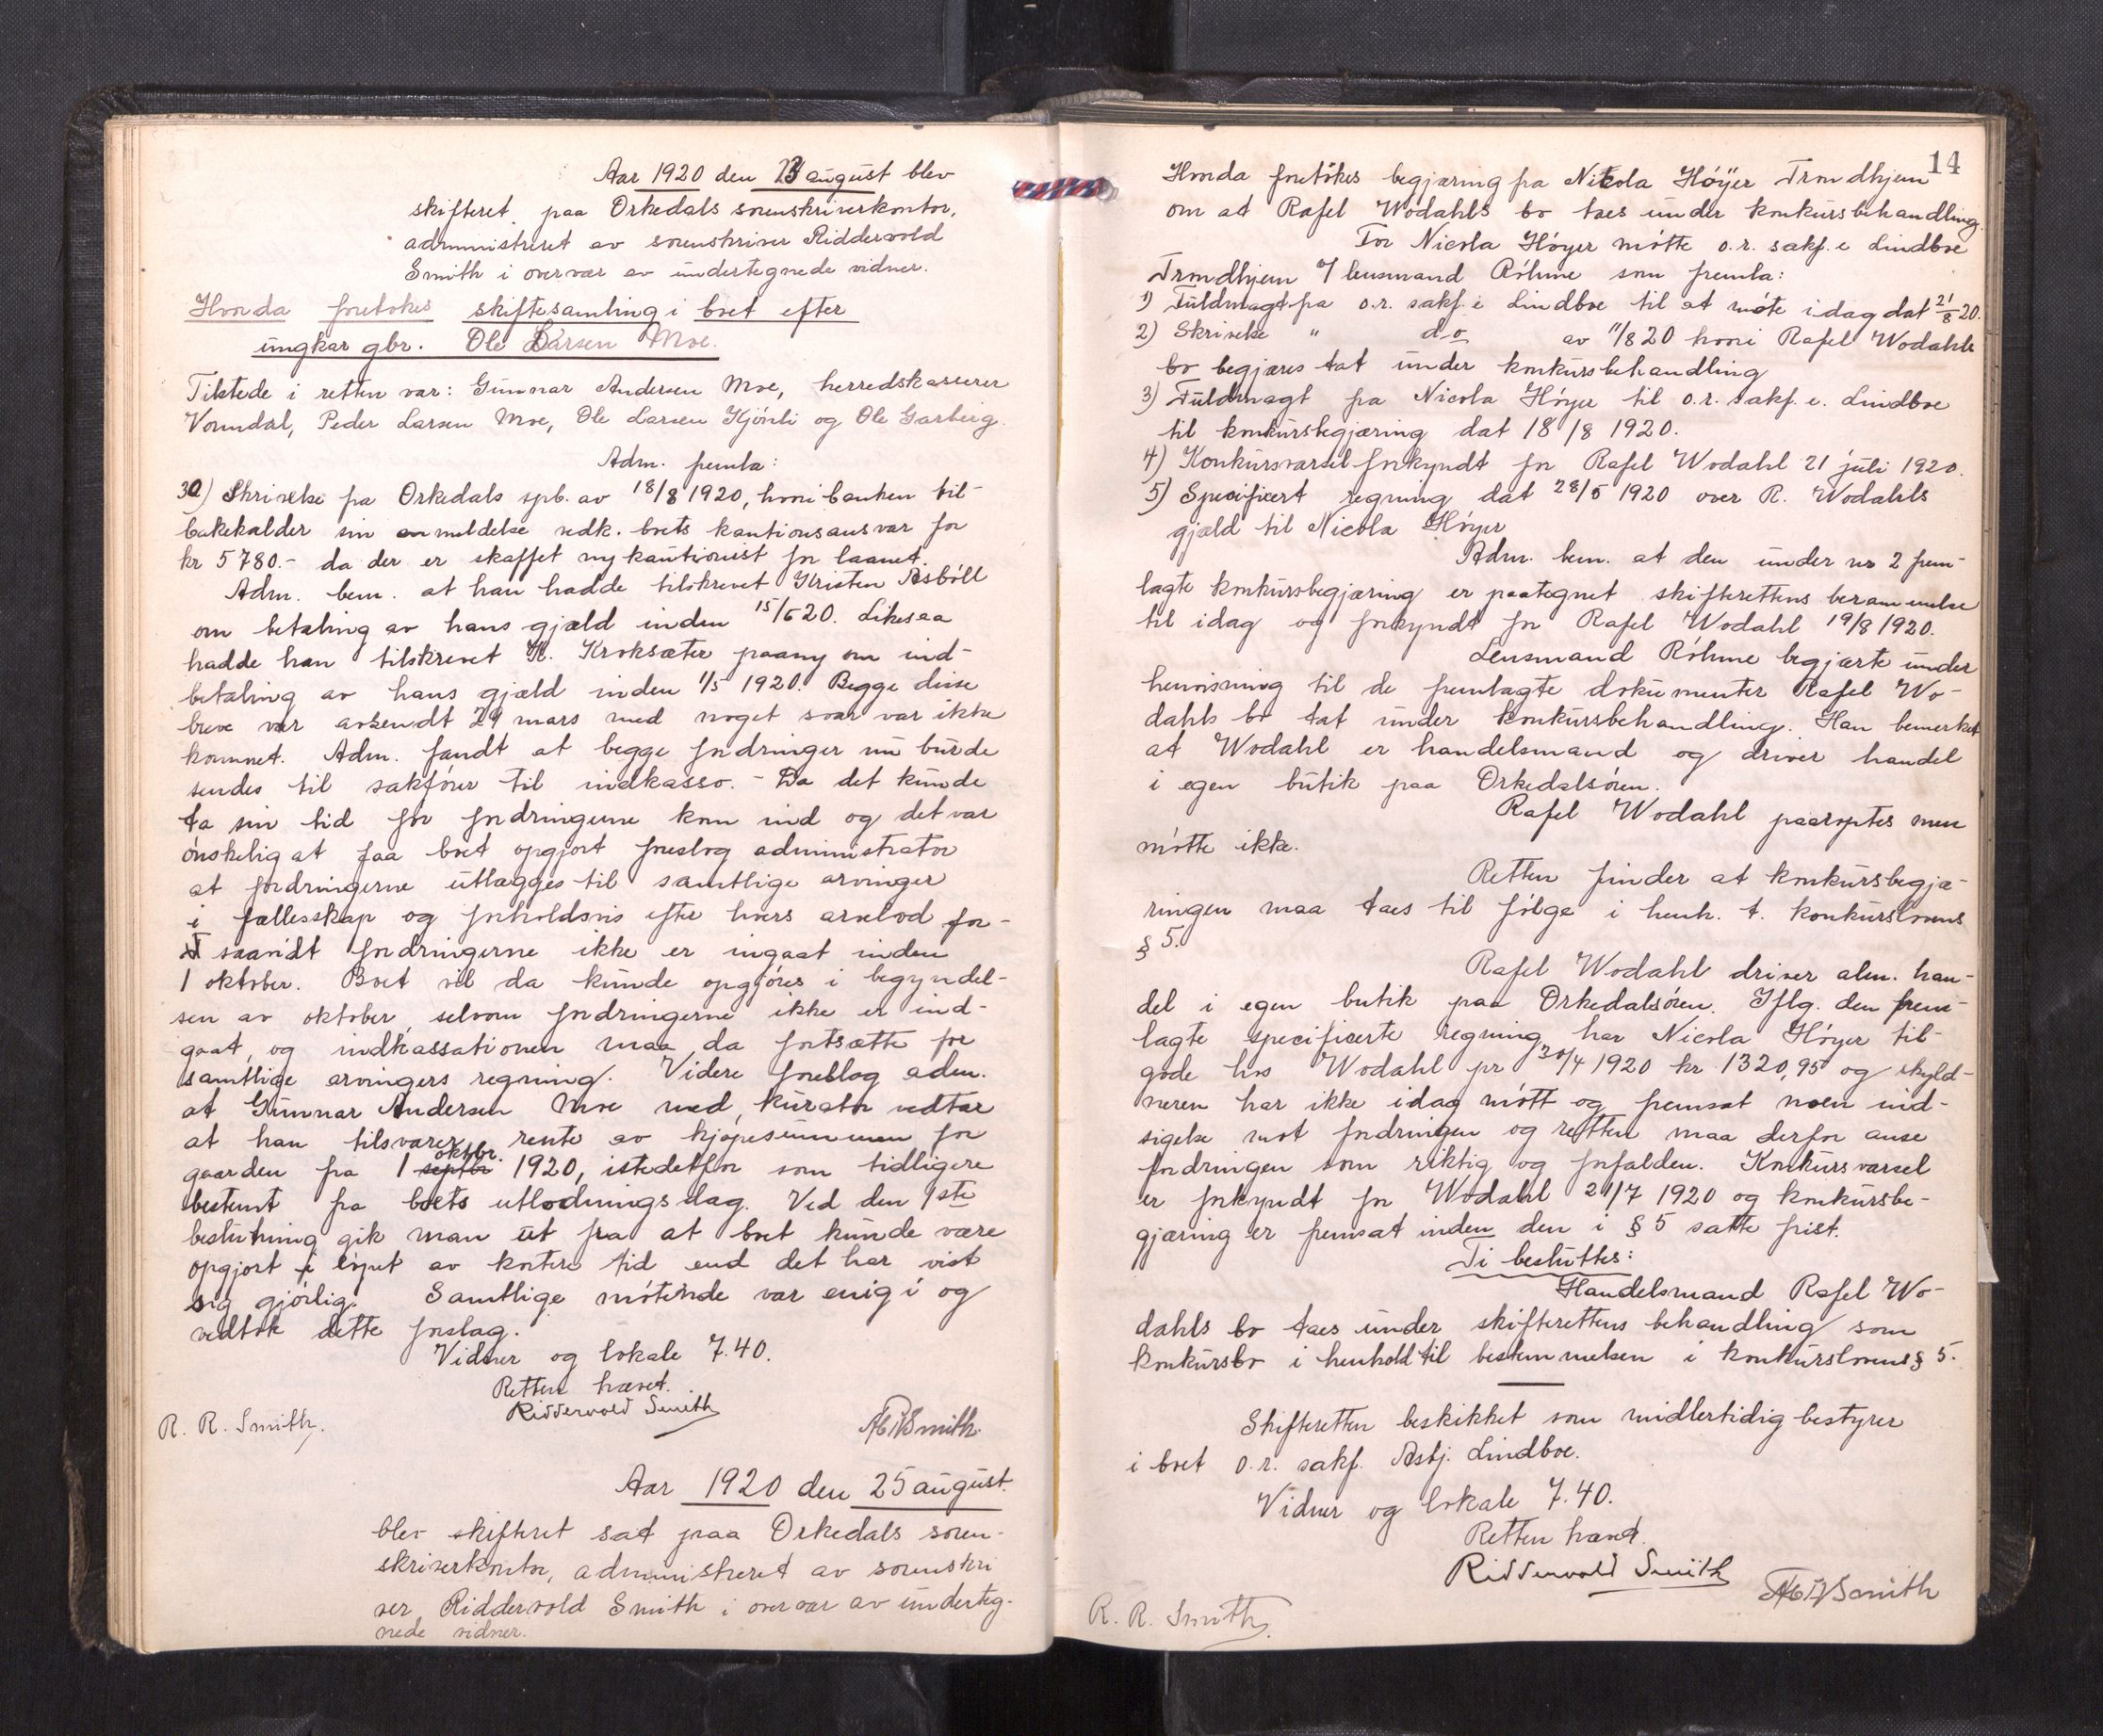 Aar 1920 den 23 august blev
skifteret paa Orkedals sorenskriverkontor,
administreret av sorenskriver Riddervold
Smith i overvær av undertegnede vidner.
Hvorda foretokes skiftesamling i boet efter
ungkar gbr. Ole Larsen Moe.
Tilstede i retten var: Gunnar Andersen Moe, herredskasserer
Vormdal, Peder Larsen Moe, Ole Larsen Kjönli og Ole Garberg.
Adm. fremla:
30) Skrivelse fra Orkedals spb. av 18/8 1920, hvori banken til-
bakekalder sin anmeldelse vedk. boets kautionsansvar for
kr 5780.- da der er skaffet ny kautionist for laanet.
Adm. bem. at han hadde tilskrevet Kristen Asböll
om betaling av hans gjæld inden 15/5 20. Likesaa
hadde han tilskrevet K. Kroksæter paany om ind-
betaling av hans gjæld inden 1/5 1920. Begge disse
breve var avsendt 29 mars med noget svar var ikke
kommet. Adm. fandt at begge fordringer nu burde
sendes til sakförer til indkasso. - Da det kunde
ta sin tid for fordringerne kom ind og det var
önskelig at faa boet opgjort foreslog administrator
at fordringerne utlægges til samtlige arvinger
i fællesskap og forholdsvis efter hvers arvelod for-
saavidt fordringerne ikke er ingaat inden
1 oktober. Boet vil da kunde opgjöres i begyndel-
sen av oktober, selvom fordringerne ikke er ind-
gaat, og indkassationen maa da fortsætte for
samtlige arvingers regning. Videre foreslog adm.
at Gunnar Andersen Moe med kurator vedtar
at han tilsvarer rente av kjöpesummen for
gaarden fra 1 septbr oktbr. 1920, istedetfor som tidligere
bestemt fra boets utlodningsdag. Ved den 1ste
beslutning gik man ut fra at boet kunde være
opgjort i löpet av kortere tid end det har vist
sig gjörlig. Samtlige mötende var enig i og
vedtok dette forslag.
Vidner og lokale 7.40.
Retten hævet.
Riddervold Smith
R. R. Smith.
Smith.
Aar 1920 den 25 august.
blev skifteret sat paa Orkedals soren-
skriverkontor, administreret av sorenskri
ver Riddervold Smith i overvær av underteg-
nede vidner.
14
Hvorda foretokes begjæring fra Nicola Höyer Trondhjem
om at Rafel Wodahls bo taes under konkursbehandling.
For Nicola Höyer mötte o.r. sakf. e Lindboe
Trondhjem v/ lensmand Röhme som fremla:
1) Fuldmagt fra o.r. sakf. e Lindboe til at möte idag dat 21/8 20.
2) Skrivelse " do av 11/8 20 hvori Rafel Wodahls
bo begjæres tat under konkursbehandling
3) Fuldmagt fra Nicola Höyer til o.r. sakf. e. Lindboe
til konkursbegjæring dat 18/8 1920.
4) Konkursvarsel forkyndt for Rafel Wodahl 21 juli 1920.
5) Specificert regning dat 28/5 1920 over R. Wodahls
gjæld til Nicola Höyer
Adm. bem. at den under nr 2 frem-
lagte konkursbegjæring er paategnet skifterettens berammelse
til idag og forkyndt for Rafel Wodahl 19/8 1920.
Lensmand Röhme begjærte under
henvisning til de fremlagte dokumenter Rafel Wo-
dahls bo tat under konkursbehandling. Han bemerket
at Wodahl er handelsmand og driver handel
i egen butik paa Orkedalsören.
Rafel Wodahl paaroptes men
mötte ikke.
Retten finder at konkursbegjæ-
ringen maa taes til fölge i henh. t. konkurslovens
§ 5.
Rafel Wodahl driver alm. han-
del i egen butik paa Orkedalsören. Iflg. den frem-
lagte specificerte regning har Nicola Höyer til-
gode hos Wodahl pr 30/4 1920 kr 1320,95 og skyld-
neren har ikke idag mött og fremsat noen ind-
sigelse mot fordringen og retten maa derfor anse
fordringen som riktig og forfalden. Konkursvarsel
er forkyndt for Wodahl 21/7 1920 og konkursbe-
gjæring er fremsat inden den i § 5 satte frist.
Ti besluttes:
Handelsmand Rafel Wo-
dahls bo taes under skifterettens behandling som
konkursbo i henhold til bestemmelsen i konkurslovens § 5.
Skifteretten beskikket som midlertidig bestyrer
i boet o.r. sakf. Asbj. Lindboe.
Vidner og lokale 7.40.
Retten hævet.
Riddervold Smith
Smith
R. R. Smith.